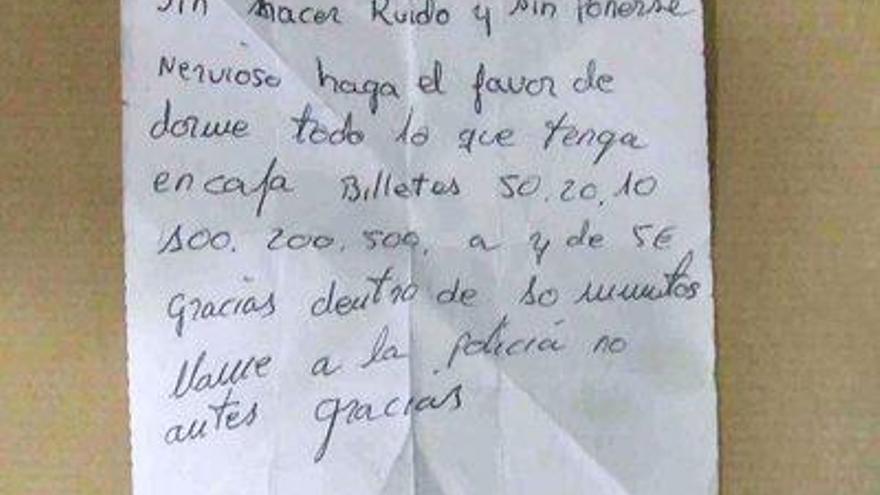 Sin hacer Ruido y sin Ponerse
Nervioso haga el favor de
dorme todo lo que tenga
en cafa Billetes 50.20.10
100. 200. 500. a y de 5€
Gracias dentro de 10 minutos
llame a la policiá no
antes gracias